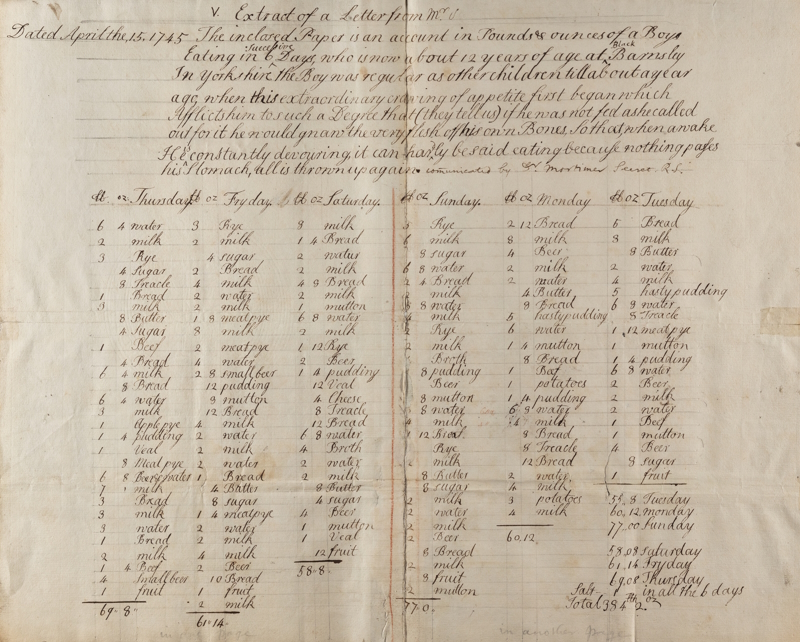 V. Extract of a Letter from Mr
Dated April the, 15, 1745 The inclosed Paper is an account in Pounds & ounces of a Boys
Eating in 6 Succesive Days, who is now about 12 years of age at Black Barnsly
In Yorkshire, the Boy was regular as other children till about a year
ago, when this extraordinary craving of appetite first began which
Afflicts him to such a Degree that (they tell us) if he was not fed as he called
out for it he would gnaw the very flesh off his own Bones, So that when awake
He is constantly devouring, it can hardly be said eating because nothing passes
his Stomach, all is thrown up again. comunicated by Dr. Mortimer Secret. R.S.
℔ oz Thursday
6 4 water
2 milk
3 Rye
4 Sugar
8 Treacle
1 Bread
3 milk
8 Butter
4 Sugar
1 Beef
4 Bread
6 4 milk
8 Bread
6 4 water
3 milk
1 Apple pye
1 4 pudding
1 Veal
8 Meat pye
6 8 Beer & water
7 milk
3 Bread
3 milk
3 water
1 Bread
2 milk
1 4 Beef
4 Small beer
1 fruit
69 - 8
℔ oz Fryday
3 Rye
2 milk
4 sugar
2 Bread
4 milk
2 water
2 milk
1 8 meat pye
8 milk
2 meat pye
4 water
2 8 small beer
12 pudding
8 mutton
12 Bread
4 milk
2 water
2 milk
2 water
1 Bread
4 Butter
8 sugar
1 4 meat pye
2 water
2 milk
4 milk
2 Beer
10 Bread
1 fruit
2 milk
61 - 14
℔ oz Saturday.
8 milk
1 4 Bread
2 watur
2 milk
4 8 Bread
2 milk
1 mutton
6 8 water
2 milk
1 12 Rye
2 Beer
1 4 pudding
12 Veal
4 Cheese
8 Treacle
12 Bread
6 8 water
4 Broth
2 water
2 milk
8 Butter
4 sugar
4 Beer
1 mutton
1 Veal
12 fruit
58 - 8.
℔ oz Sunday.
3 Rye
6 milk
8 sugar
6 8 water
2 4 Bread
2 milk
8 8 water
4 milk
2 Rye
2 milk
Broth
8 pudding
Beer
8 mutton
8 water
4 milk
1 12 Bread
Rye
2 milk
8 Butter
8 sugar
2 milk
2 water
2 milk
2 Beer
8 Bread
2 milk
8 fruit
2 mutton
77 - 0.
℔ oz Monday
2 12 Bread
8 milk
4 Beer
2 milk
2 water
4 Butter
8 Bread
5 hasty pudding
6 water
1 4 mutton
8 Bread
1 Beef
1 potatoes
1 4 pudding
6 8 water
4 milk
8 Bread
8 Treacle
12 Bread
2 water
4 milk
3 potatoes
4 milk
60, 12.
℔ oz Tuesday
5 Bread
8 milk
8 Butter
2 water
4 milk
5 hasty pudding
6 8 water
8 Treacle
1 12 meat pye
1 mutton
1 4 pudding
6 8 water
2 Beer
2 milk
2 water
1 Beef
1 mutton
4 Beer
8 sugar
1 fruit
55, 8 Tuesday
60, 12 monday
77, 00 Sunday
58, 08 Saturday
61, 14 Fryday
69, 08 Thursday
Salt - 1 in all the 6 days
Total 384 ℔ 2 oz